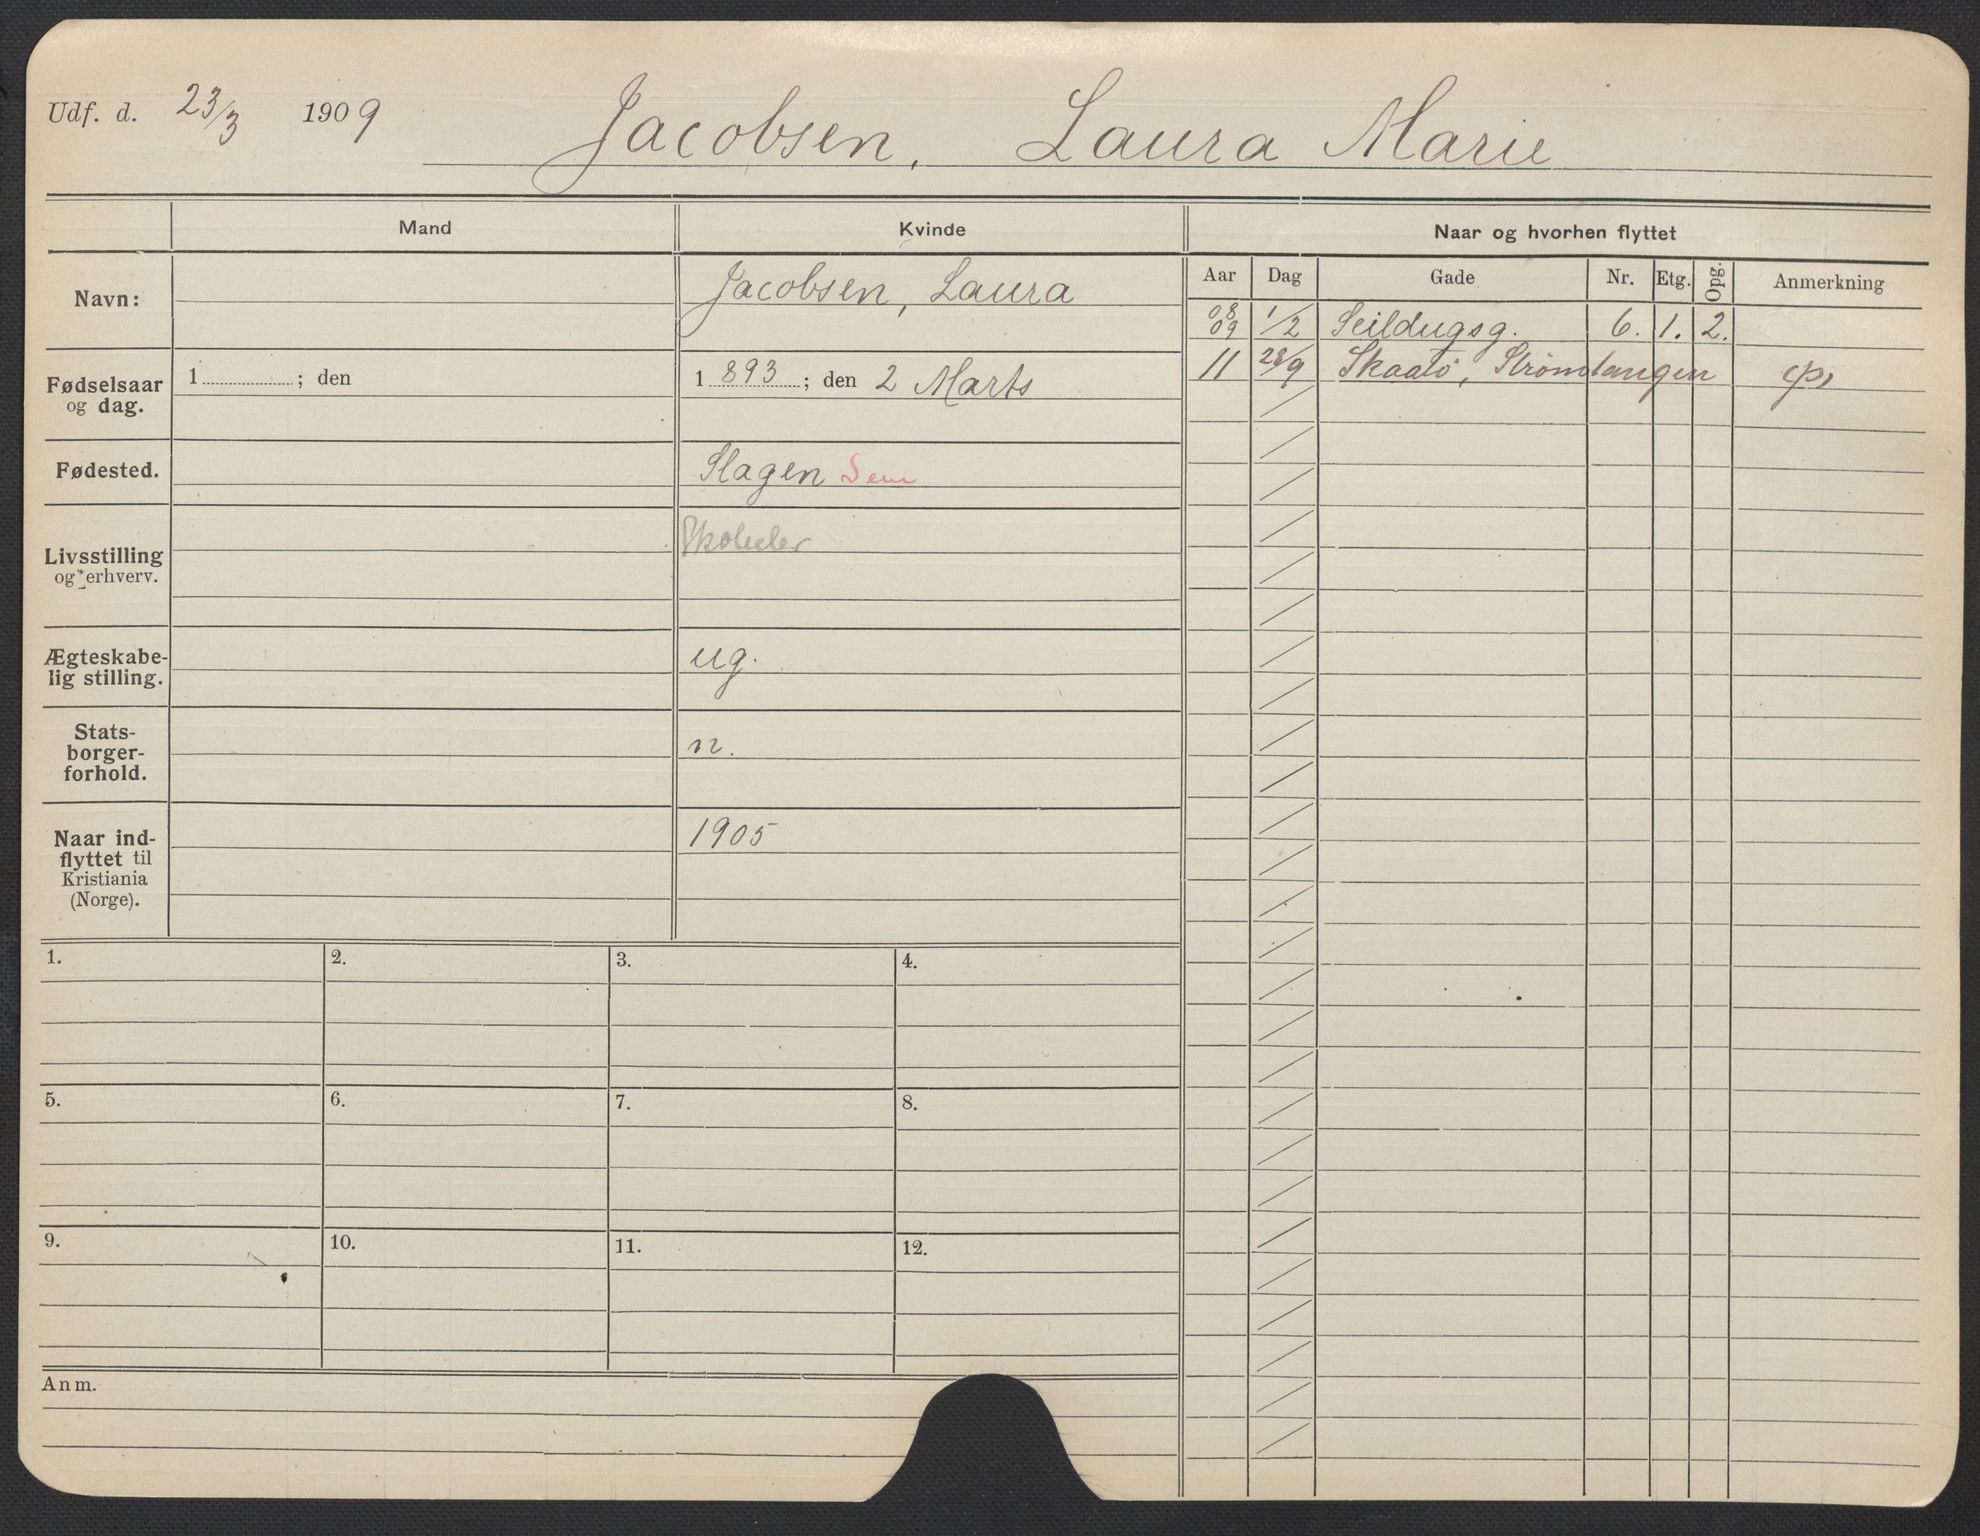 Udf. d. 23/3 1909 Jacobsen, Laura Marie
Mand Kvinde Naar og hvorhen flyttet
Aar Dag Gade Nr. Etg. Opg. Anmerkning
Navn: Jacobsen, Laura
08
09 1/2 Seildugsg. 6. 1. 2.
11 28/9 Skaatø, Strømtangen
Fødselsaar
og dag.
1 ; den
1893; den 2 Marts
Fødested. Slagen Sem
Livsstilling
og erhverv.
Ægteskabe-
lig stilling.
ug.
Stats-
borger-
forhold.
n.
Naar ind-
flyttet til
Kristiania
(Norge).
1905
1. 2. 3. 4.
5. 6. 7. 8.
9. 10. 11. 12.
Anm.